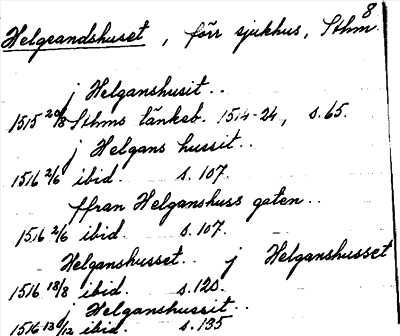 8
Helgeandshuset, förr sjukhus, Sthm.
j Helganshusit..
1515 20/8 Sthms tänkeb. 1514-24, s.65.
j Helgans hussit..
1516 2/6 ibid. s.107.
ffran Helganshuss gaten..
1516 2/6 ibid. s.107.
Helganshusset.. j Helganshusset
1516 18/8 ibid. s.120.
j Helganshussit..
1516 13/12 ibid. s.135